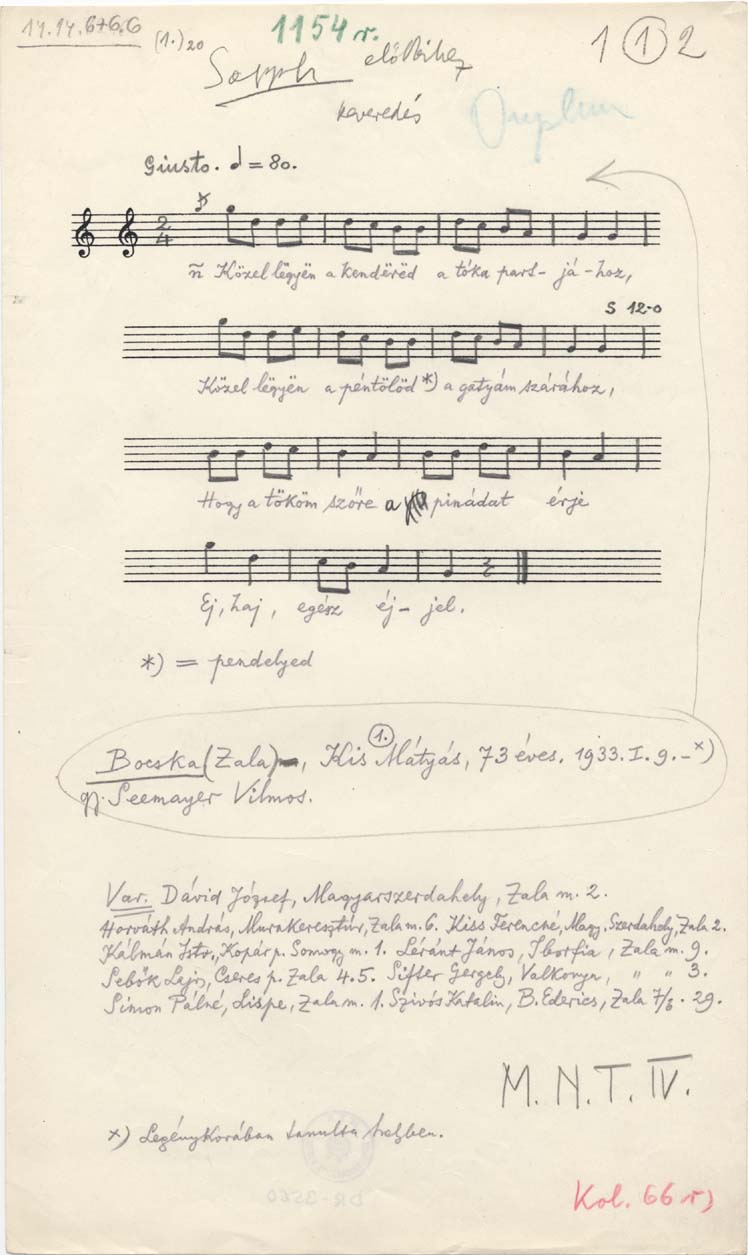 14.14.6+6.6
(1.) 20
1154 r.
előbbihez
1 1 2
keveredés
Giusto. = 80.
2
4
ñ Közel lëgyën a kendërëd a tóka part-já-hoz,
S 12-0
Közel lëgyën a péntölöd *) a gatyám szárához,
Hogy a tököm szőre a pinádat érje
Ej, haj, egész éj-jel.
*) = pendelyed
1.
Bocska (Zala), Kis Mátyás, 73 éves. 1933. I. 9. - x)
gy. Seemayer Vilmos.
Var. Dávid József, Magyarszerdahely, Zala m. 2.
Horváth András, Murakeresztúr, Zala m. 6. Kiss Ferencné, Magy. Szerdahely, Zala 2.
Kálmán Istv., Kopár p. Somogy m. 1. Léránt János, Iborfia, Zala m. 9.
Sebők Lajos, Cseres p. Zala 4.5. Sifter Gergely, Valkonya, " " 3.
Simon Pálné, Lispe, Zala m. 1. Szívós Katalin, B. Ederics, Zala 7/8. 29.
M. N. T. IV.
x) Legénykorában tanulta helyben.
Kol. 66 r)